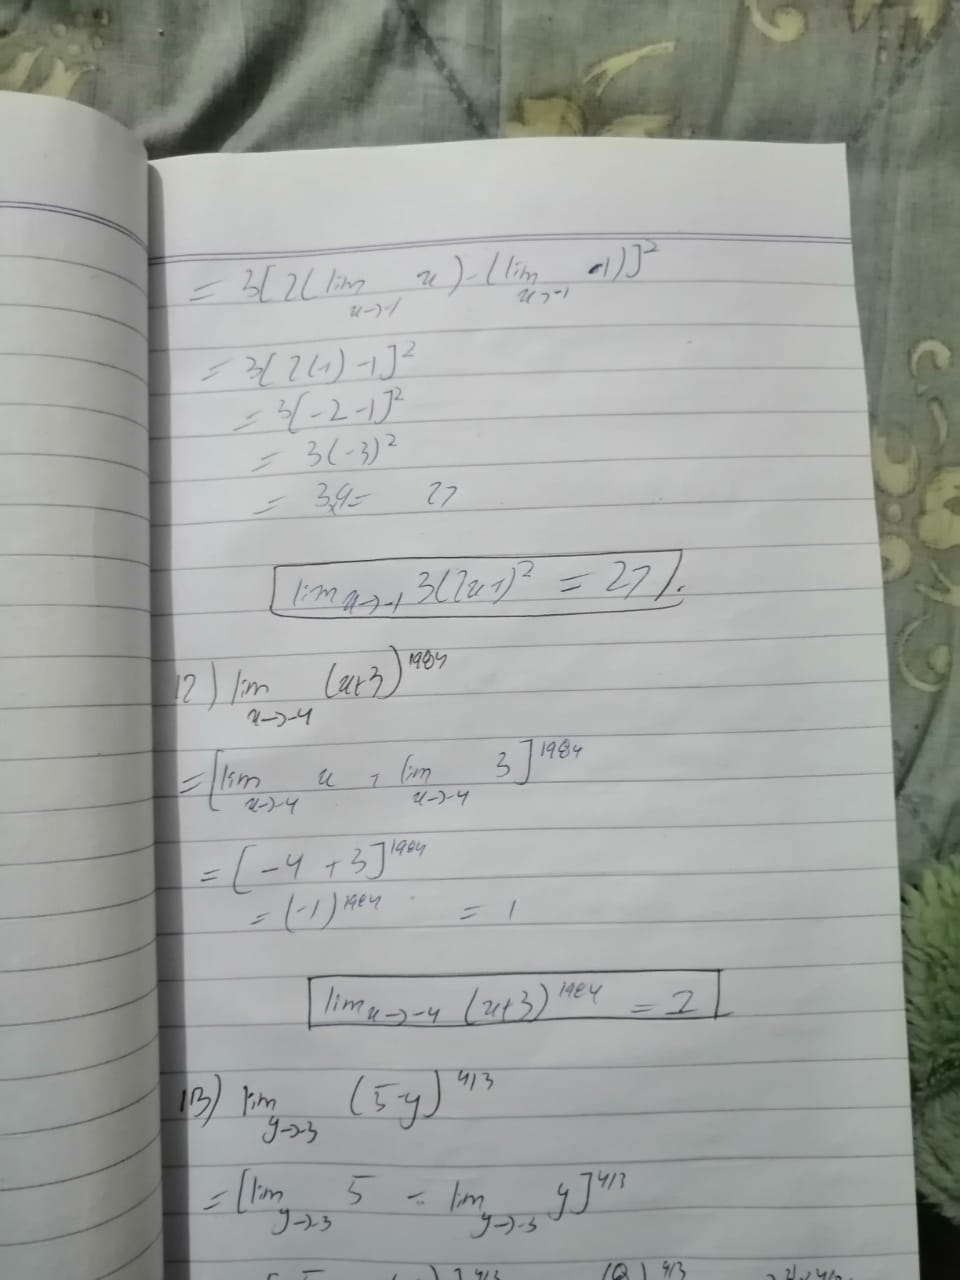 = 3[2(lim x→-1 x) - (lim x→-1 1)]²
= 3[2(-1) -1]²
= 3[-2 -1]²
= 3(-3)²
= 3×9= 27
lim x→-1 3(2x-1)² = 27
12) lim x→-4 (x+3)^1984
= [lim x→-4 x + lim x→-4 3]^1984
= [-4 +3]^1984
= (-1)^1984 = 1
lim x→-4 (x+3)^1984 = 1
13) lim y→-3 (5-y)^4/3
= [lim y→-3 5 - lim y→-3 y]^4/3